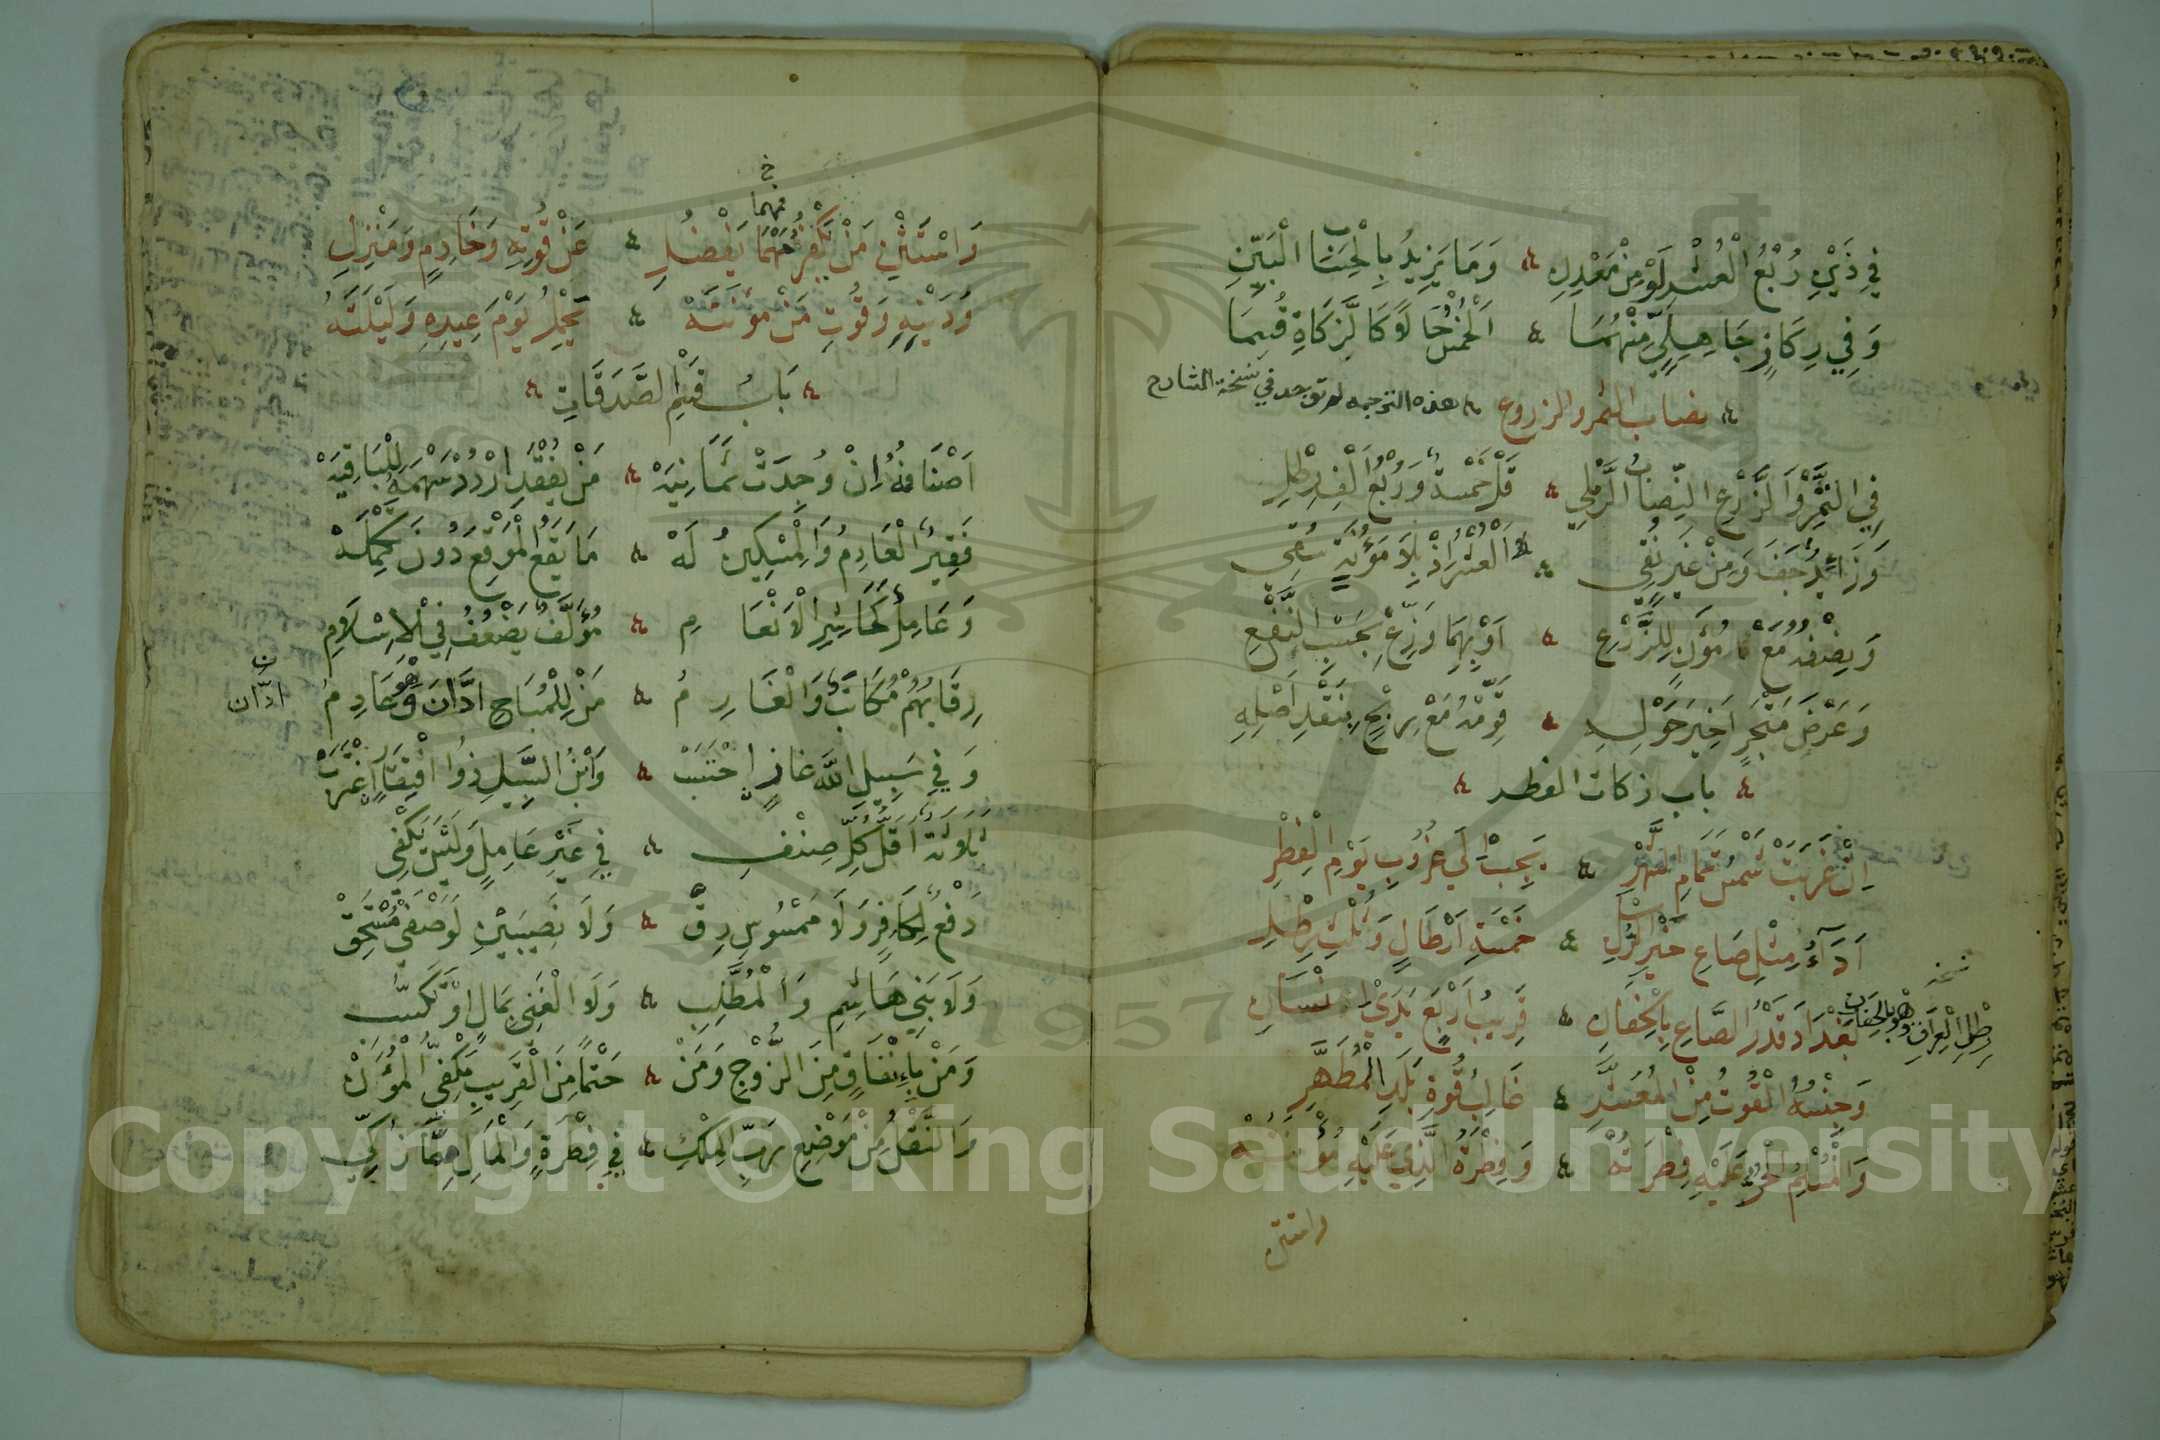 فِي ذَيْنِ رُبْعُ الْعُشْرِ لَوْ مِنْ مَعْدِنِ ۞ وَمَا يَزِيدُ بِالْحِسَابِ الْبَيِّنِ
وَفِي رِكَازٍ جَاهِلِيٍّ مِنْهُمَا ۞ اَلْخُمْسُ حَالًا كَالزَّكَاةِ قُسِمَا
نصاب الثمر والزروع
هذه الترجمه لم توجد في نسخة الشارح
فِي التَّمْرِ وَالزَّرْعِ النِّصَابُ الرَّمْلِي ۞ قَلْ خَمْسَةٌ وَرُبْعُ اَلْفِ رِطْلِ
وَزَائِدٌ جَفَّ وَمِنْ غَيْرٍ نُقِي ۞ اَلْعُشْرُ اِذْ بِلَا مَؤُنَةٍ سُقِي
وَنِصْفُهُ مَعْ مُؤَنٍ لِلزَّرْعِ ۞ اَوْ بِهِمَا وَزِّعْ بِحَسَبِ النَّفْعِ
وَعَرْضَ مَتْجَرٍ اَخِيرَ حَوْلِهِ ۞ قَوِّمْهُ مَعْ رِبْحٍ بِنَقْدِ اَصْلِهِ
باب زكات الفطر
اِنْ غَرَبَتْ شَمْسُ تَمَامِ الشَّهْرِ ۞ يَجِبْ اِلَى غُرُوبِ يَوْمِ الْفِطْرِ
اَدَآءُ مِثْلِ صَاعِ خَيْرِ الرُّسْلِ ۞ خَمْسَةِ اَرْطَالٍ وَثُلْثِ رِطْلِ
بَغْدَادَ قَدْرُ الصَّاعِ بِالْحِفَانِ ۞ قَرِيبُ اَرْبَعٍ يَدَيْ اِنْسَانِ
نسخه
رطل العراق وهو بالحفان
وَجِنْسُهُ الْقُوتُ مِنَ الْمُعَشَّرِ ۞ غَالِبُ قُوتِ بَلَدِ الْمُطَهَّرِ
وَالْمُسْلِمُ الْحُرُّ عَلَيْهِ فِطْرَتُهْ ۞ وَفِطْرَةُ الَّذِي عَلَيْهِ مُؤْنَتُهْ
واستثن
خ فمهما
وَاسْتَثْنِ مَنْ يَكْفُرُ مَهْمَا يَفْضُلِ ۞ عَنْ قُوتِهِ وَخَادِمٍ وَمَنْزِلِ
وَدَيْنِهِ وَقُوتِ مَنْ مَؤُنَتَهْ ۞ يَحْمِلُ يَوْمَ عِيدِهِ وَلَيْلَتَهْ
بَابُ قَسْمِ الصَّدَقَاتِ
اَصْنَافُهُ اِنْ وُجِدَتْ ثَمَانِيَهْ ۞ مَنْ يُفْقَدِ ارْدُدْ سَهْمَهُ لِلْبَاقِيَهْ
فَقِيرٌ الْعَادِمُ وَالْمِسْكِينُ لَهْ ۞ مَا يَقَعُ الْمَوْقِعَ دُونَ تَكْمِلَهْ
وَعَامِلٌ كَحَاشِرِ الْاَنْعَامِ ۞ مُؤَلَّفٌ يَضْعُفُ فِي الْاِسْلَامِ
رِقَابُهُمْ مُكَاتَبٌ وَالْغَارِمُ ۞ مَنْ لِلْمُبَاحِ ادَّانَ وَهْوَ عَادِمُ
ن ادّان
وَفِي سَبِيلِ اللّٰهِ غَازٍ اِحْتَسَبْ ۞ وَابْنُ السَّبِيلِ ذُو افْتِقَارٍ اغْتَرَبْ
ثَلَاثَةٌ اَقَلُّ كُلِّ صِنْفِ ۞ فِي غَيْرِ عَامِلٍ وَلَيْسَ يَكْفِي
دَفْعٌ لِكَافِرٍ وَلَا مَمْسُوسِ رِقّْ ۞ وَلَا نَصِيبَيْنِ لِوَصْفَيْ مُسْتَحِقّْ
وَلَا بَنِي هَاشِمِ وَالْمُطَّلِبِ ۞ وَلَا الْغَنِي بِمَالٍ اَوْ تَكَسُّبِ
وَمَنْ بِاِنْفَاقٍ مِنَ الزَّوْجِ وَمَنْ ۞ حَتْمًا مِنَ الْقَرِيبِ مَكْفِيُّ الْمُؤَنْ
وَالنَّقْلُ مِنْ مَوْضِعِ رَبِّ الْمِلْكِ ۞ فِي فِطْرَةٍ وَالْمَالِ مِمَّا زُكِّي
1957
Copyright © King Saud University